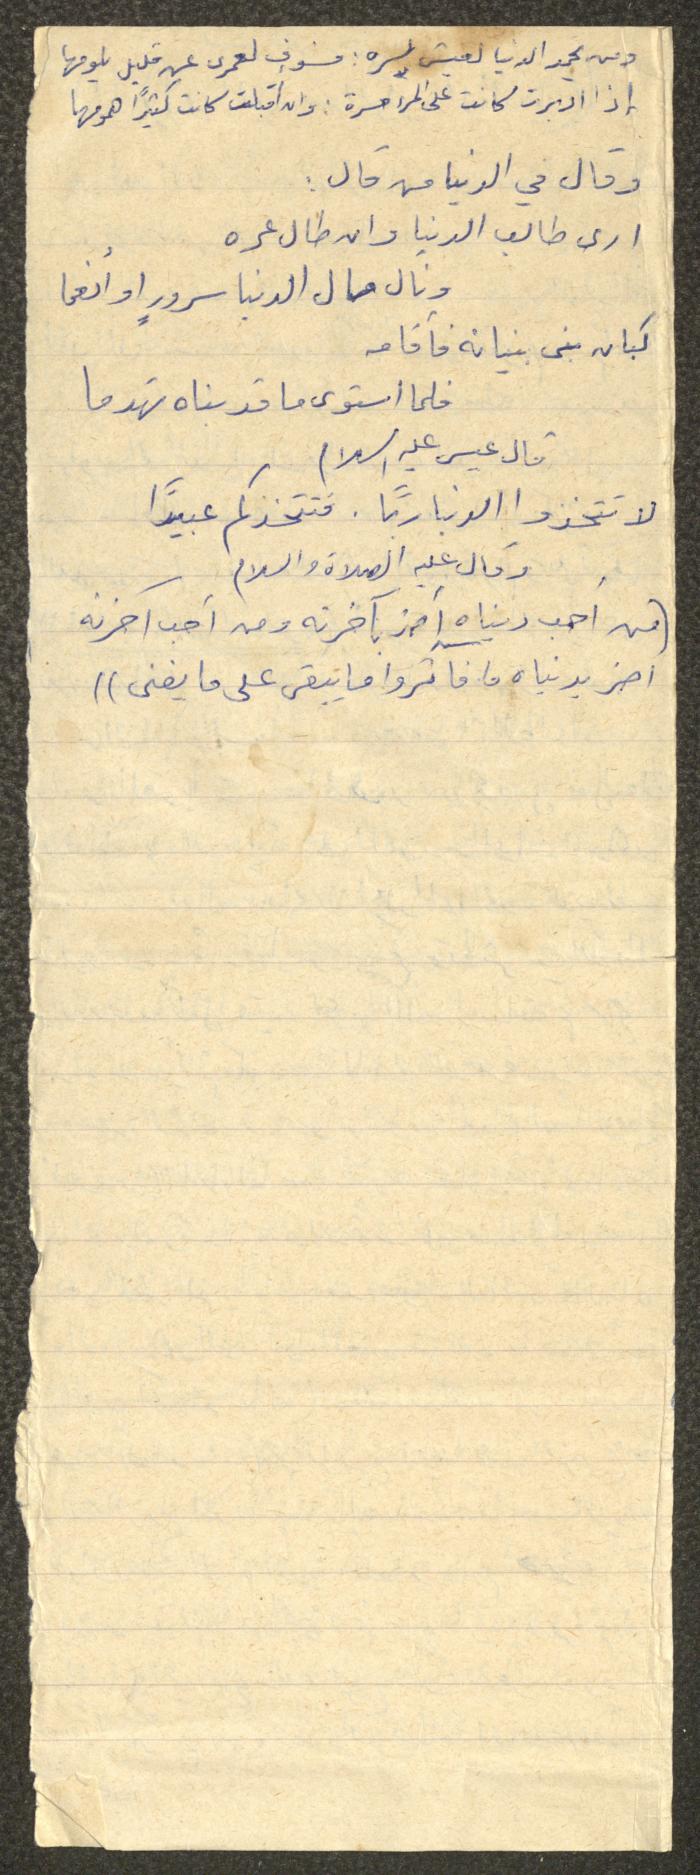 ومن يحمد الدنيا لعيش يسره : فسوف لعمري عن قليل يلومها
إذا ادبرت كانت على المرء حسرة : وان أقبلت كانت كثيرًا همومها
وقال في الدنيا من قال :
ارى طالب الدنيا وان طال عمره
ونال من الدنيا سرورٍ او أنعما
كبان بنى بنيانه فأقامه
فلما استوى ما قد بناه تهدما
قال عيسى عليه السلام
لا تتخذوا الدنيا ربًّا . فتتخذكم عبيدًا
وقال عليه الصلاة والسلام
(من أحب دنياه أضر بآخرته ومن أحب آخرته
اضر بدنياه فآثروا ما يبقى على ما يفنى ))